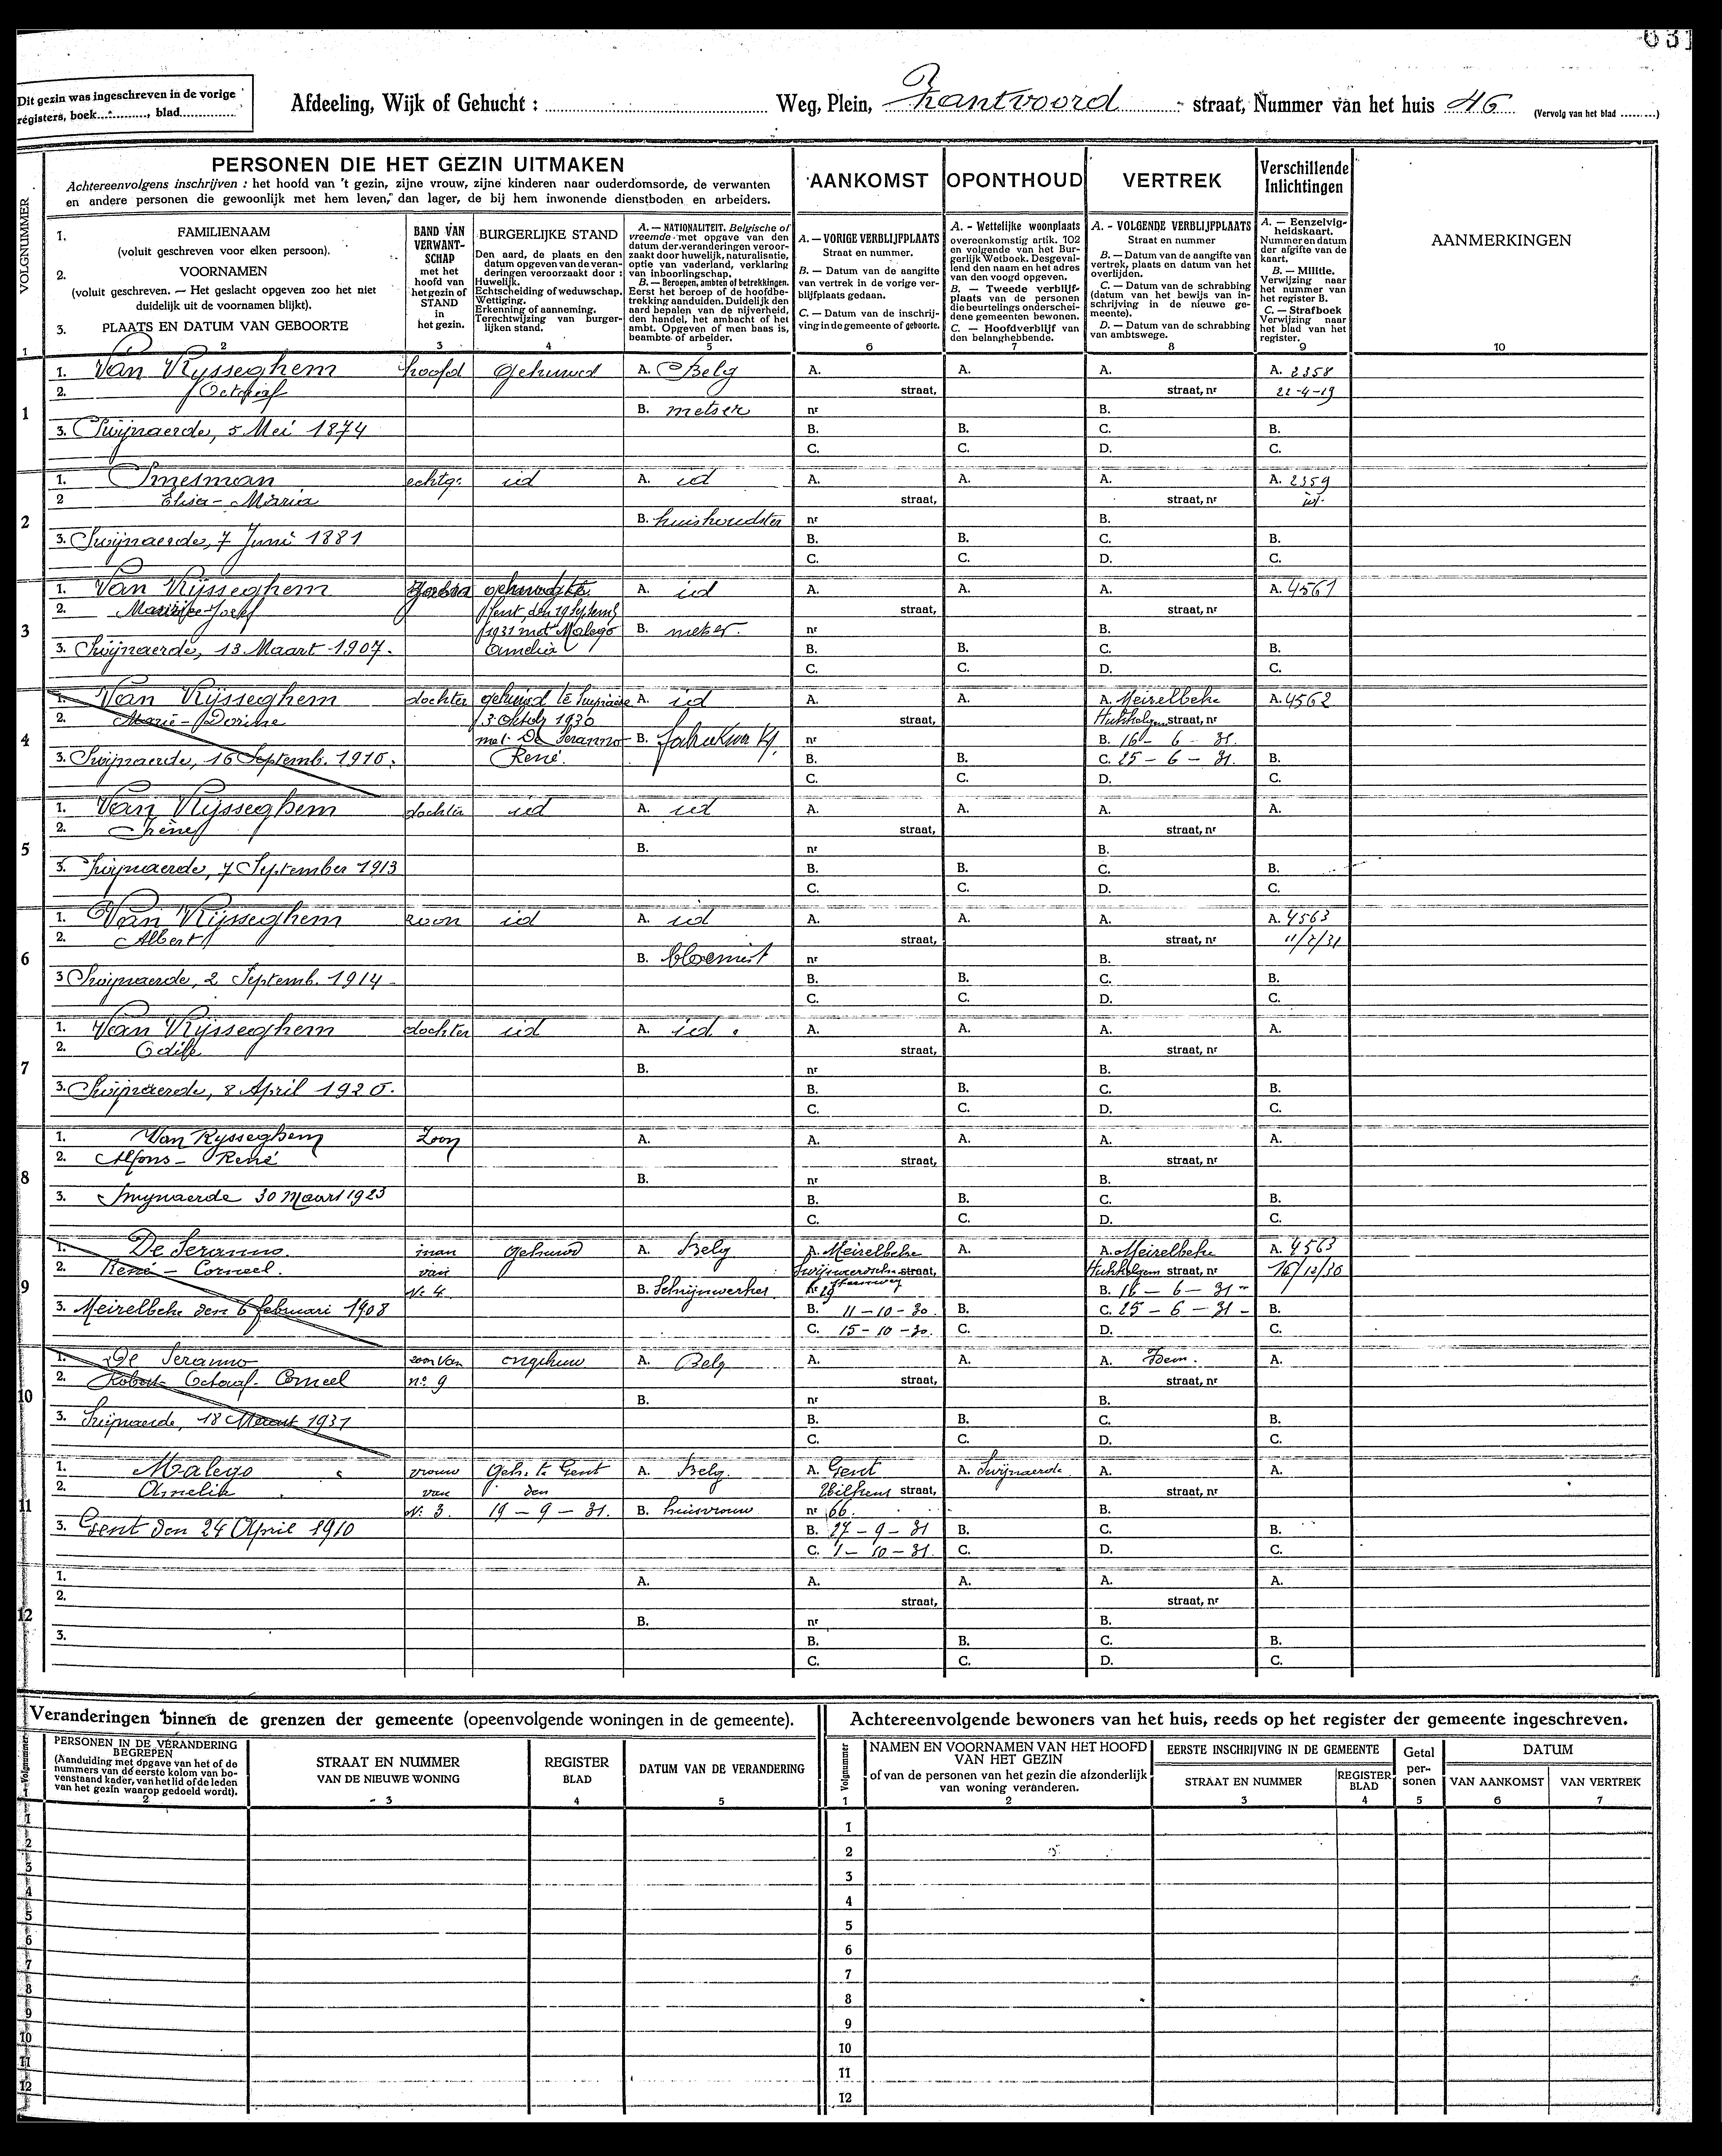 631
Dit gezin was ingeschreven in de vorige
registers, boek............, blad...............
Afdeeling, Wijk of Gehucht : ............ Weg, Plein, Zantvoord straat, Nummer van het huis 46 (Vervolg van het blad ........)
VOLGNUMMER
PERSONEN DIE HET GEZIN UITMAKEN
Achtereenvolgens inschrijven : het hoofd van 't gezin, zijne vrouw, zijne kinderen naar ouderdomsorde, de verwanten
en andere personen die gewoonlijk met hem leven, dan lager, de bij hem inwonende dienstboden en arbeiders.
AANKOMST
OPONTHOUD
VERTREK
Verschillende
Inlichtingen
1. FAMILIENAAM
(voluit geschreven voor elken persoon).
2. VOORNAMEN
(voluit geschreven. — Het geslacht opgeven zoo het niet
duidelijk uit de voornamen blijkt).
3. PLAATS EN DATUM VAN GEBOORTE
BAND VAN
VERWANT-
SCHAP
met het
hoofd van
het gezin of
STAND
in
het gezin.
BURGERLIJKE STAND
Den aard, de plaats en den
datum opgeven van de veran-
deringen veroorzaakt door :
Huwelijk.
Echtscheiding of weduwschap.
Wettiging.
Erkenning of aanneming.
Terechtwijzing van burger-
lijken stand.
A. — NATIONALITEIT. Belgische of
vreemde met opgave van den
datum der veranderingen veroor-
zaakt door huwelijk, naturalisatie,
optie van vaderland, verklaring
van inboorlingschap.
B. — Beroepen, ambten of betrekkingen.
Eerst het beroep of de hoofdbe-
trekking aanduiden. Duidelijk den
aard bepalen van de nijverheid,
den handel, het ambacht of het
ambt. Opgeven of men baas is,
beambte of arbeider.
A. — VORIGE VERBLIJFPLAATS
Straat en nummer.
B. — Datum van de aangifte
van vertrek in de vorige ver-
blijfplaats gedaan.
C. — Datum van de inschrij-
ving in de gemeente of geboorte.
A. - Wettelijke woonplaats
overeenkomstig artik. 102
en volgende van het Bur-
gerlijk Wetboek. Desgeval-
lend den naam en het adres
van den voogd opgeven.
B. — Tweede verblijf-
plaats van de personen
die beurtelings onderschei-
dene gemeenten bewonen.
C. — Hoofdverblijf van
den belanghebbende.
A. - VOLGENDE VERBLIJFPLAATS
Straat en nummer
B. — Datum van de aangifte van
vertrek, plaats en datum van het
overlijden.
C. — Datum van de schrabbing
(datum van het bewijs van in-
schrijving in de nieuwe ge-
meente).
D. — Datum van de schrabbing
van ambtswege.
A. — Eenzelvig-
heidskaart.
Nummer en datum
der afgifte van de
kaart.
B. — Militie.
Verwijzing naar
het nummer van
het register B.
C. — Strafboek
Verwijzing naar
het blad van het
register.
AANMERKINGEN
1 2 3 4 5 6 7 8 9 10
1
1. Van Rijsseghem hoofd gehuwd A. Belg A. A. A. A. 2358
2. Octaaf straat, straat, nr 22-4-19
B. metser nr B.
3. Swijnaerde, 5 Mei 1874 B. B. C. B.
C. C. D. C.
2
1. Smesman echtg. id A. id A. A. A. A. 2359
2 Elisa-Maria straat, straat, nr id.
B. huishoudster nr B.
3. Swijnaerde, 7 Juni 1881 B. B. C. B.
C. C. D. C.
3
1. Van Rijsseghem gehuwd te A. id A. A. A. A. 4561
2. Joseph Gent, den 19 Septemb straat, straat, nr
1931 met Malego B. metser. nr B.
3. Swijnaerde, 13 Maart 1907. Amelia B. B. C. B.
C. C. D. C.
4
1. Van Rijsseghem dochter gehuwd te A. id A. A. A. Meirelbeke A. 4562
2. Marie- 3 Oktob 1930 straat, straat, nr
met De Seranno B. nr B. 16 - 6 - 31.
3. Swijnaerde, 16 Septemb. 1910. René. B. B. C. 25 - 6 - 31. B.
C. C. D. C.
5
1. Van Rijsseghem dochter id A. id A. A. A. A.
2. Irène straat, straat, nr
B. nr B.
3. Swijnaerde, 7 September 1913 B. B. C. B.
C. C. D. C.
6
1. Van Rijsseghem zoon id A. id A. A. A. A. 4563
2. Albert straat, straat, nr 11/2/31
B. bloemist nr B.
3 Swijnaerde, 2 Septemb. 1914 B. B. C. B.
C. C. D. C.
7
1. Van Rijsseghem dochter id A. id. A. A. A. A.
2. Odile straat, straat, nr
B. nr B.
3. Swijnaerde, 8 April 1920. B. B. C. B.
C. C. D. C.
8
1. Van Rysseghem Zoon A. A. A. A. A.
2. Alfons- René straat, straat, nr
B. nr B.
3. Swynaerde 30 Maart 1923 B. B. C. B.
C. C. D. C.
9
1. De Seranno. man gehuwd A. Belg A. Meirelbeke A. A. Meirelbeke A. 4563
2. René - Corneel. van straat, straat, nr 16/12/30
Nr 4 B. Schrijnwerker nr 29 B. 16 - 6 - 31 -
3. Meirelbeke den 6 februari 1908 B. 11-10-30. B. C. 25 - 6 - 31 - B.
C. 15-10-30. C. D. C.
10
1. De Seranno zoon van ongehuw A. Belg A. A. A. Idem. A.
2. Robert- Octaaf- Corneel n° 9 straat, straat, nr
B. nr B.
3. Swijnaerde, 18 Maart 1931 B. B. C. B.
C. C. D. C.
11
1. Malego vrouw Geh. te Gent A. Belg. A. Gent A. Swijnaerde A. A.
2. Amelia van den straat, straat, nr
Nr 3. 19 - 9 - 31. B. huisvrouw nr 66. B.
3. Gent den 24 April 1910 B. 27 - 9 - 31 B. C. B.
C. 1 - 10 - 31. C. D. C.
12
1. A. A. A. A. A.
2. straat, straat, nr
B. nr B.
3. B. B. C. B.
C. C. D. C.
Veranderingen binnen de grenzen der gemeente (opeenvolgende woningen in de gemeente).
Volgnummer
PERSONEN IN DE VERANDERING
BEGREPEN
(Aanduiding met opgave van het of de
nummers van de eerste kolom van bo-
venstaand kader, van het lid of de leden
van het gezin waarop gedoeld wordt).
STRAAT EN NUMMER
VAN DE NIEUWE WONING
REGISTER
BLAD
DATUM VAN DE VERANDERING
1 2 3 4 5
1
2
3
4
5
6
7
8
9
10
11
12
Achtereenvolgende bewoners van het huis, reeds op het register der gemeente ingeschreven.
Volgnummer
NAMEN EN VOORNAMEN VAN HET HOOFD
VAN HET GEZIN
of van de personen van het gezin die afzonderlijk
van woning veranderen.
EERSTE INSCHRIJVING IN DE GEMEENTE
STRAAT EN NUMMER
REGISTER
BLAD
Getal
per-
sonen
DATUM
VAN AANKOMST
VAN VERTREK
1 2 3 4 5 6 7
1
2
3
4
5
6
7
8
9
10
11
12